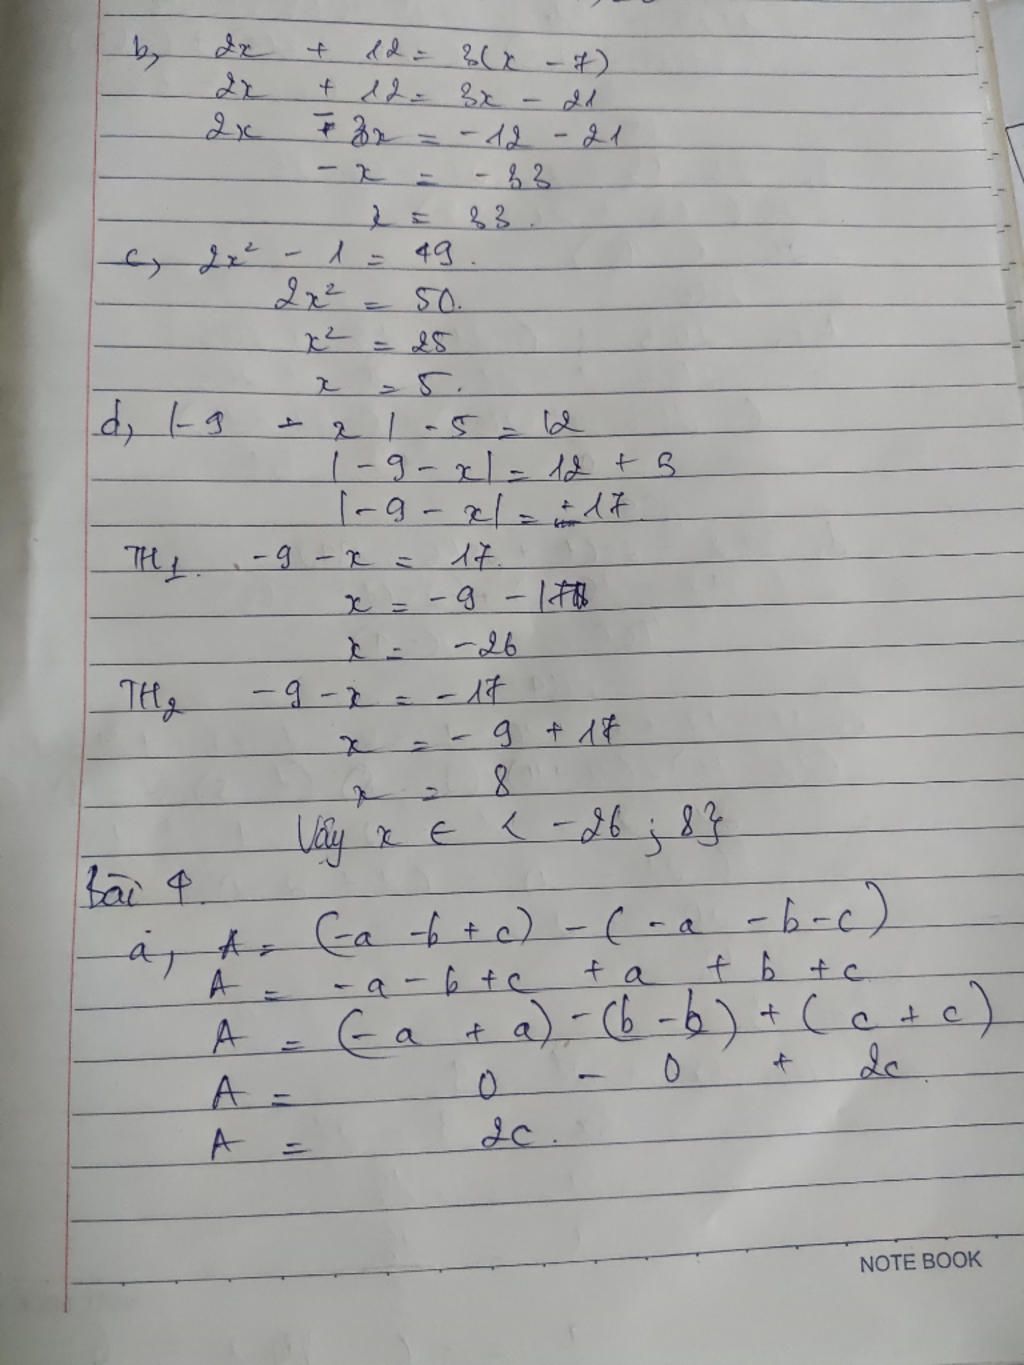 b, 2x + 12 = 3(x - 7)
2x + 12 = 3x - 21
2x - 3x = -12 - 21
- x = - 33
x = 33.
c, 2x² - 1 = 49.
2x² = 50.
x² = 25
x = 5.
d, |-9 - x| - 5 = 12
|-9 - x| = 12 + 5
|-9 - x| = ±17
TH1. -9 - x = 17.
x = -9 - 17
x = -26
TH2 -9 - x = -17
x = -9 + 17
x = 8
Vậy x ∈ { -26 ; 8}
Bài 4.
a, A = (-a -b + c) - ( -a - b - c)
A = -a - b + c + a + b + c
A = (-a + a) - (b - b) + ( c + c)
A = 0 - 0 + 2c.
A = 2c.
NOTE BOOK